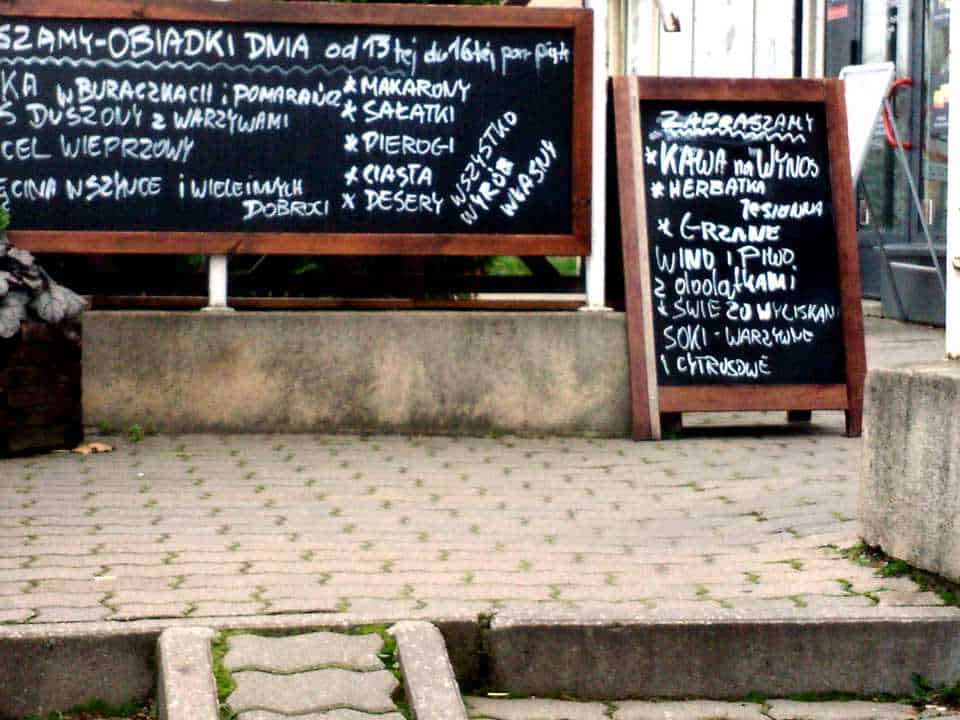 SZAMY-OBIADKI DNIA od 13tej do 16tej pon-piątk
KA w BURACZKACH i POMARAŃCZ
Ś DUSZONY z WARZYWAMI
CEL WIEPRZOWY
ĘCINA W SZYNCE i WIELE INNYCH
DOBROCI
* MAKARONY
* SAŁATKI
* PIEROGI
* CIASTA
* DESERY
WSZYSTKO
WYRÓB
WŁASNY
ZAPRASZAMY
* KAWA na WYNOS
* HERBATKA
JESIENNA
* GRZANE
WINO I PIWO
z dodatkami
* ŚWIEŻO WYCISKAN
SOKI - WARZYWNE
I CYTRUSOWE